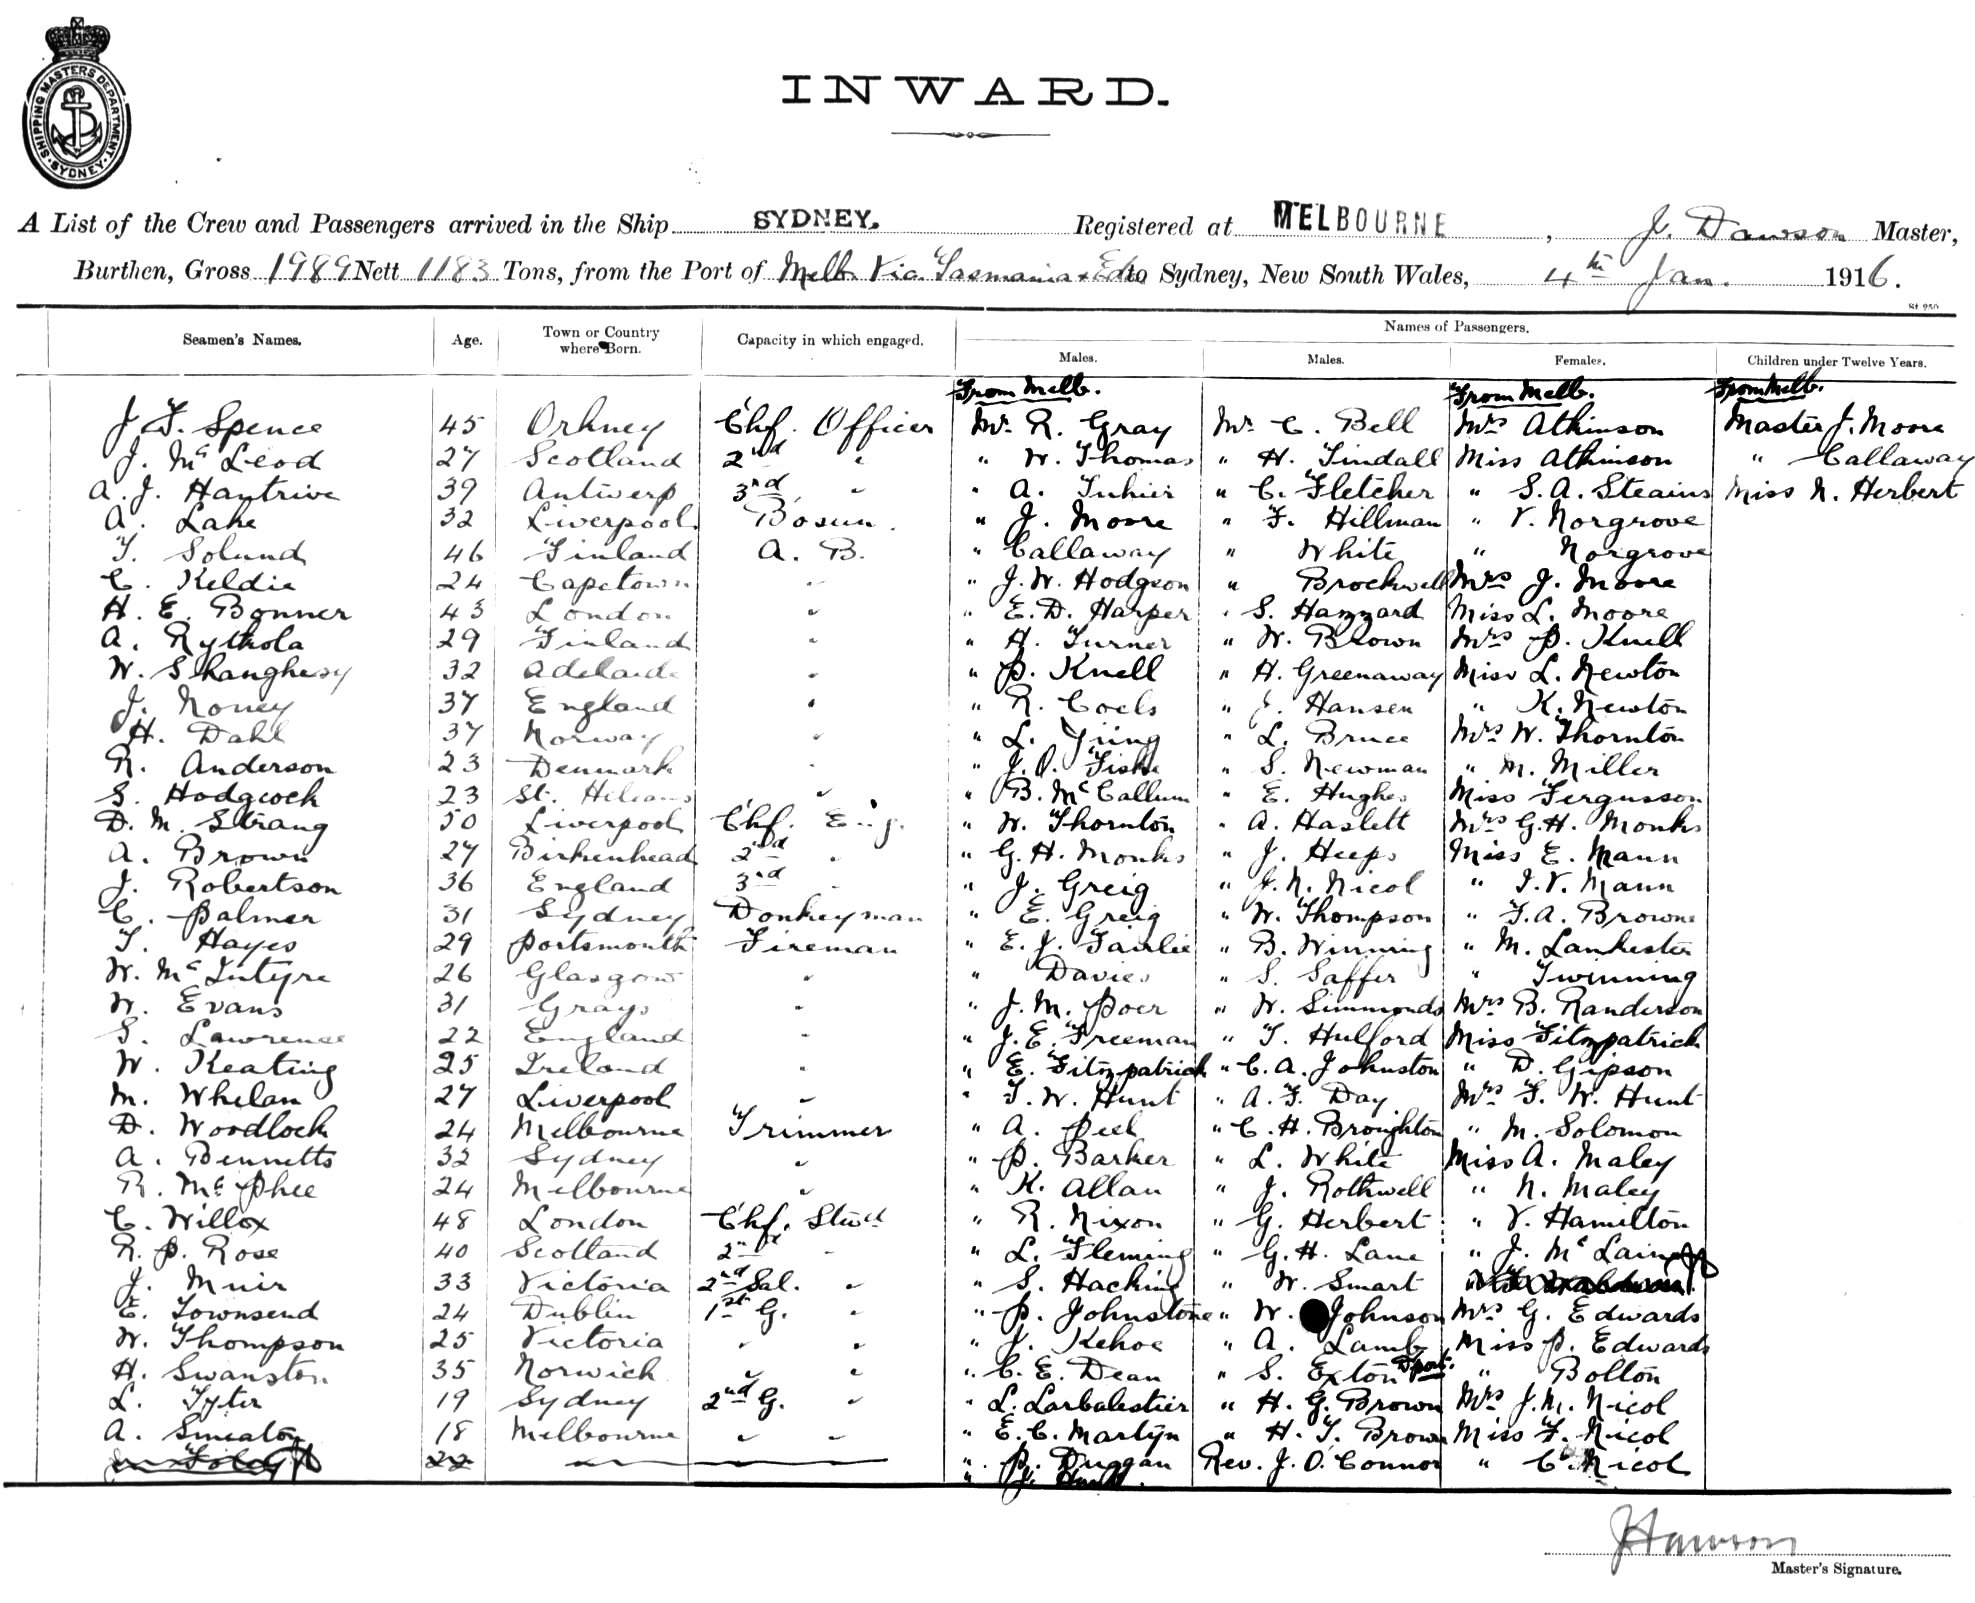 SHIPPING MASTERS DEPARTMENT. SYDNEY.
INWARD.
A List of the Crew and Passengers arrived in the Ship SYDNEY. Registered at MELBOURNE, J. Dawson Master,
Burthen, Gross 1989 Nett 1183 Tons, from the Port of Melb. Via Tasmania & Eden to Sydney, New South Wales, 4th Jan. 1916.
St 250
Names of Passengers.
Seamen's Names. Age. Town or Country where Born. Capacity in which engaged. Males. Males. Females. Children under Twelve Years.
From Melb. From Melb. From Melb.
J. F. Spence 45 Orkney Chf. Officer Mr. R. Gray Mr. C. Bell Mrs Atkinson Master J. Moore
J. Mc Leod 27 Scotland 2nd " " W. Thomas " H. Tindall Miss Atkinson " Callaway
A. J. Hantrive 39 Antwerp 3rd " " A. " C. Fletcher " S. A. Steains Miss N. Herbert
A. Lake 32 Liverpool Bosun. " J. Moore " F. Hillman " V. Norgrove
T. Solund 46 Finland A. B. " Callaway " White " Norgrove
C. Keldie 24 Capetown " " J. W. Hodgson " Brockwell Mrs J. Moore
H. E. Bonner 43 London " " E. D. Harper " S. Hazzard Miss L. Moore
A. Rytkola 29 Finland " " H. Turner " W. Brown Mrs P. Knell
W. Shanghesy 32 Adelaide " " P. Knell " H. Greenaway Miss L. Newton
J. Noney 37 England " " R. Coels " J. Hansen " K. Newton
H. Dahl 37 Norway " " L. " L. Bruce Mrs W. Thornton
R. Anderson 23 Denmark " " J. O. Fiske " S. Newman " M. Miller
S. Hodgcock 23 St. " " B. Mc Callum " E. Hughes Miss Fergusson
D. M. Strang 50 Liverpool Chf. Eng. " W. Thornton " A. Haslett Mrs G. H. Monks
A. Brown 27 Birkenhead 2nd " " G. H. Monks " J. Heeps Miss E. Mann
J. Robertson 36 England 3rd " " J. Greig " J. N. Nicol " I. V. Mann
C. Palmer 31 Sydney Donkeyman " E. Greig " W. Thompson " F. A. Browne
T. Hayes 29 Portsmouth Fireman " E. J. Fairlie " B. Winning " M. Lankester
W. Mc Intyre 26 Glasgow " " Davies " S. Saffer " Twinning
W. Evans 31 Grays " " J. M. Poer " W. Simmonds Mrs B. Randerson
S. Lawrence 22 England " " J. E. Freeman " T. Hulford Miss Fitzpatrick
W. Keating 25 Ireland " " E. Fitzpatrick " C. A. Johnston " D. Gipson
M. Whelan 27 Liverpool " " F. W. Hunt " A. F. Day Mrs F. W. Hunt
D. Woodlock 24 Melbourne Trimmer " A. Peel " C. H. Broughton " M. Solomon
A. Bennetts 32 Sydney " " P. Barker " L. White Miss A. Maley
R. Mc Phee 24 Melbourne " " K. Allan " J. Rothwell " N. Maley
C. Willox 48 London Chf. Stwd " R. Nixon " G. Herbert " V. Hamilton
R. P. Rose 40 Scotland 2nd " " L. Fleming " G. H. Lane " J. Mc Laine
J. Muir 33 Victoria 2nd Sal. " " S. Hacking " W. Smart
E. Townsend 24 Dublin 1st G. " " P. Johnstone " W. Johnson Mrs G. Edwards
W. Thompson 25 Victoria " " " J. Kehoe " A. Lamb Miss P. Edwards
H. Swanston 35 Norwich " " " C. E. Dean " S. Exton Dport. " Bolton
L. Tyter 19 Sydney 2nd G. " " L. Larbalestier " H. G. Brown Mrs J. N. Nicol
A. Smeaton 18 Melbourne " " " E. C. Martyn " H. T. Brown Miss F. Nicol
Foley 22 " P. Duggan Rev. J. O'Connor " C. Nicol
" J. Hunt.
J Dawson
Master's Signature.